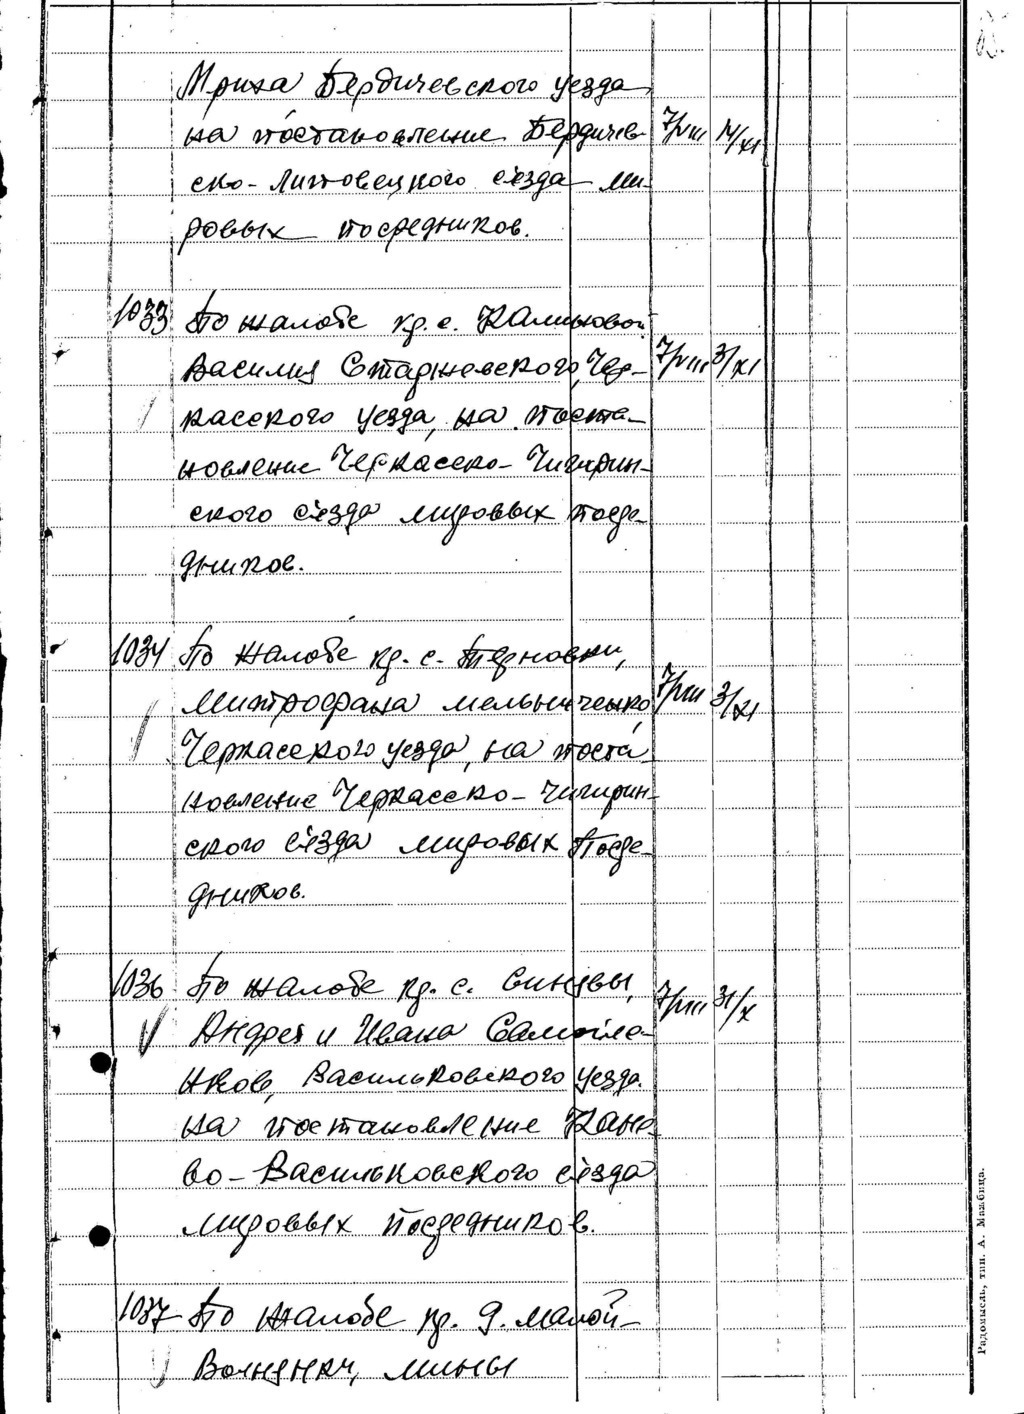 Мриха Бердичевского уезда
на постановление Бердичев- 7/VIII 14/XI
ско-Липовецкого съезда ми-
ровых посредников.
1033 По жалобе кр. с. Калиновой
Василия Старжевского, Чер- 7/VIII 3/XI
касского уезда, на поста-
новление Черкасско-Чигирин-
ского съезда мировых посре-
дников.
1034 По жалобе кр. с. Терновки,
Митрофана Мельниченко, 7/VIII 3/XI
Черкасского уезда, на поста-
новление Черкасско-Чигирин-
ского съезда мировых посре-
дников.
1036 По жалобе кр. с. 7/VIII 31/X
Андрея и Ивана Самойле-
нков, Васильковского уезда
на постановление Кане-
во-Васильковского съезда
мировых посредников.
1037 По жалобе кр. д. Малой-
Мины
Радомысль, тип. А. Манбица.